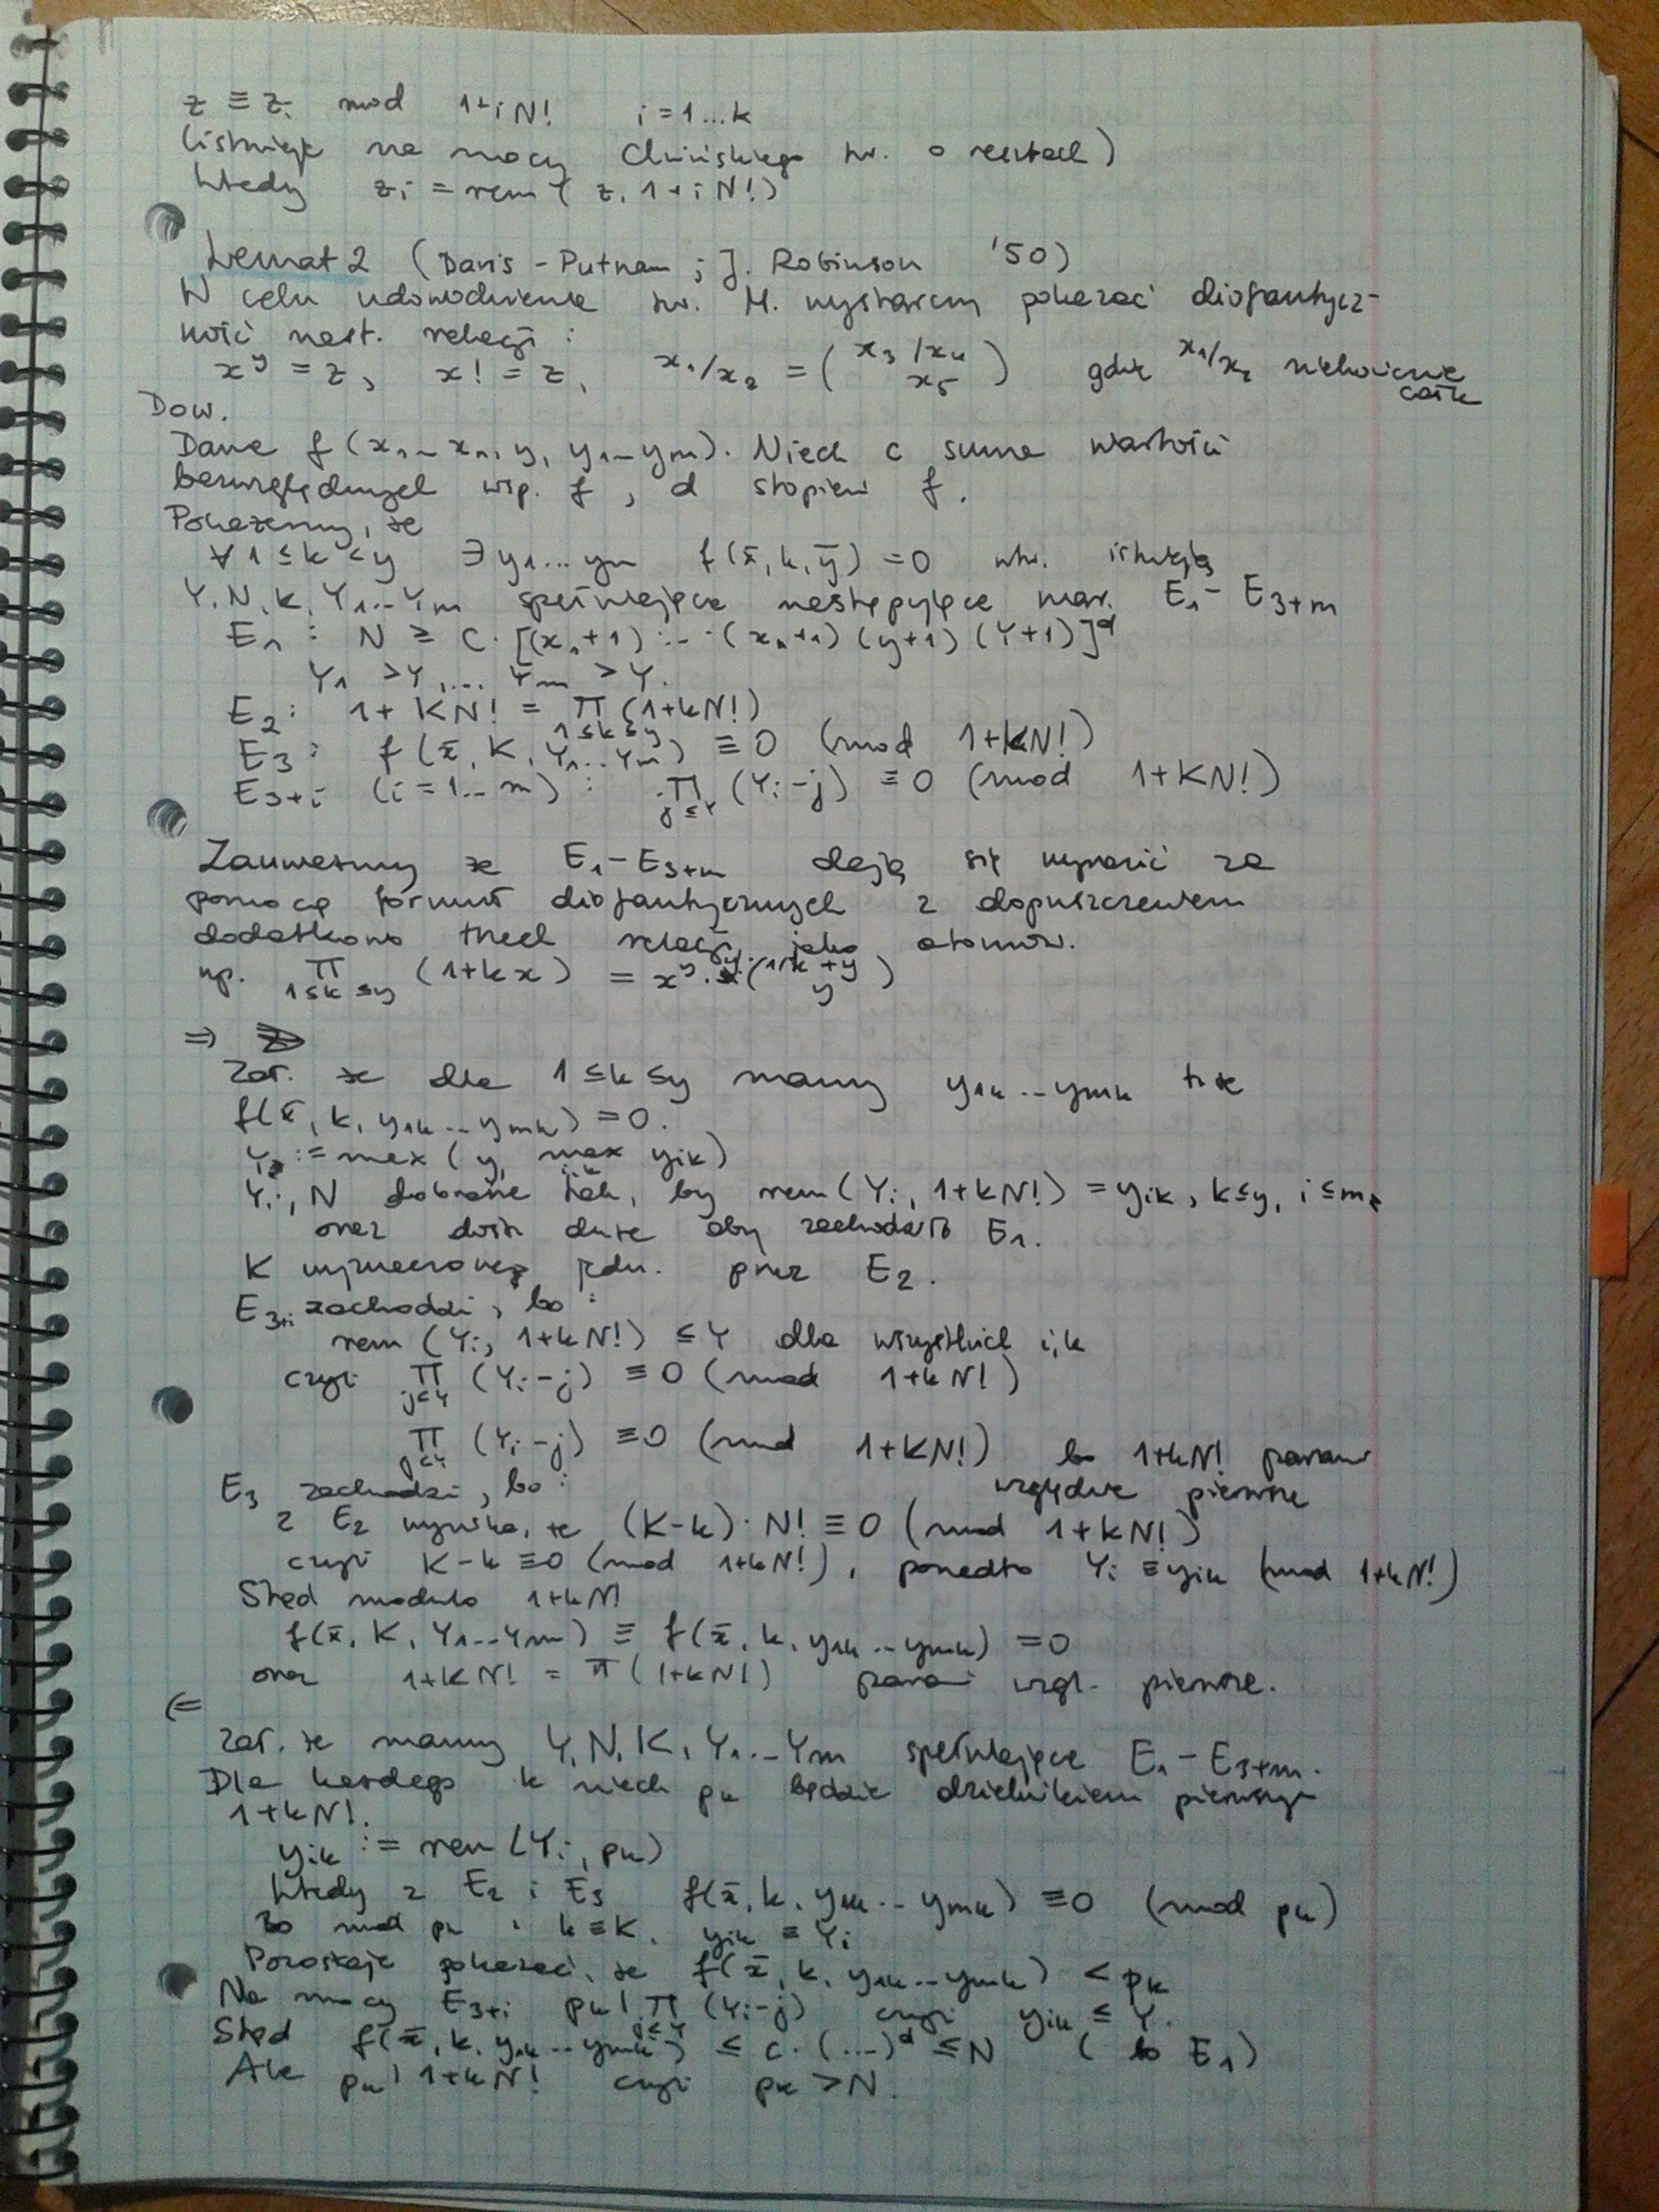 z ≡ zᵢ mod 1+iN! i=1...k
(istnieje na mocy Chińskiego tw. o resztach)
Wtedy zᵢ = rem(z, 1+iN!)
Lemat 2 (Davis - Putnam ; J. Robinson '50)
W celu udowodnienia tw. M. wystarczy pokazać diofantycz-
ność nast. relacji :
x^y = z, x! = z, x₁/x₂ = (x₃/x₄ x₅) gdzie x₁/x₂ niekoniecznie
całk
Dow.
Dane f(x₁...xₙ, y, y₁...yₘ). Niech c suma wartości
bezwzględnych wsp. f, d stopień f.
Pokażemy, że
∀ 1≤k≤y ∃y₁...yₘ f(x̄, k, ȳ) = 0 wtw. istnieją
Y, N, K, Y₁...Yₘ spełniające następujące war. E₁ - E₃₊ₘ
E₁ : N ≥ c·[(x₁+1)·...·(xₙ+1)(y+1)(Y+1)]^d
Y₁ > Y, ... Yₘ > Y.
E₂ : 1+KN! = ∏ (1+kN!)
1≤k≤y
E₃ : f(x̄, K, Y₁...Yₘ) ≡ 0 (mod 1+KN!)
E₃₊ᵢ (i=1...m) : ∏ (Yᵢ-j) ≡ 0 (mod 1+KN!)
j≤Y
Zauważmy że E₁ - E₃₊ₘ dają się wyrazić za
pomocą formuł diofantycznych z dopuszczeniem
dodatkowo trzech relacji jako atomów.
np. ∏ (1+kx) = x^y · y! (1/x + y y)
1≤k≤y
⇒
Zał. że dla 1≤k≤y mamy y₁ₖ...yₘₖ t. że
f(x̄, k, y₁ₖ...yₘₖ) = 0.
Y := max(y, max yᵢₖ)
i,k
Yᵢ, N dobrane tak, by rem(Yᵢ, 1+kN!) = yᵢₖ, k≤y, i≤m,
oraz dość duże aby zachodziło E₁.
K wyznaczone jedn. przez E₂.
E₃₊ᵢ zachodzi, bo :
rem(Yᵢ, 1+kN!) ≤ Y dla wszystkich i,k
czyli ∏ (Yᵢ-j) ≡ 0 (mod 1+kN!)
j≤Y
∏ (Yᵢ-j) ≡ 0 (mod 1+KN!) bo 1+kN! parami
j≤Y
względnie pierwsze
E₃ zachodzi, bo :
z E₂ wynika, że (K-k)·N! ≡ 0 (mod 1+kN!)
czyli K-k ≡ 0 (mod 1+kN!), ponadto Yᵢ ≡ yᵢₖ (mod 1+kN!)
Stąd modulo 1+kN!
f(x̄, K, Y₁...Yₘ) ≡ f(x̄, k, y₁ₖ...yₘₖ) = 0
oraz 1+KN! = ∏(1+kN!) parami wzgl. pierwsze.
⇐
Zał. że mamy Y, N, K, Y₁...Yₘ spełniające E₁ - E₃₊ₘ.
Dla każdego k niech pₖ będzie dzielnikiem pierwszym
1+kN!.
yᵢₖ := rem(Yᵢ, pₖ)
Wtedy z E₂ i E₃ f(x̄, k, y₁ₖ...yₘₖ) ≡ 0 (mod pₖ)
Bo mod pₖ : k ≡ K, yᵢₖ ≡ Yᵢ
Pozostaje pokazać, że f(x̄, k, y₁ₖ...yₘₖ) < pₖ
Na mocy E₃₊ᵢ pₖ | ∏ (Yᵢ-j) czyli yᵢₖ ≤ Y.
j≤Y
Stąd f(x̄, k, y₁ₖ...yₘₖ) ≤ c·(...)^d ≤ N (bo E₁)
Ale pₖ | 1+kN! czyli pₖ > N.